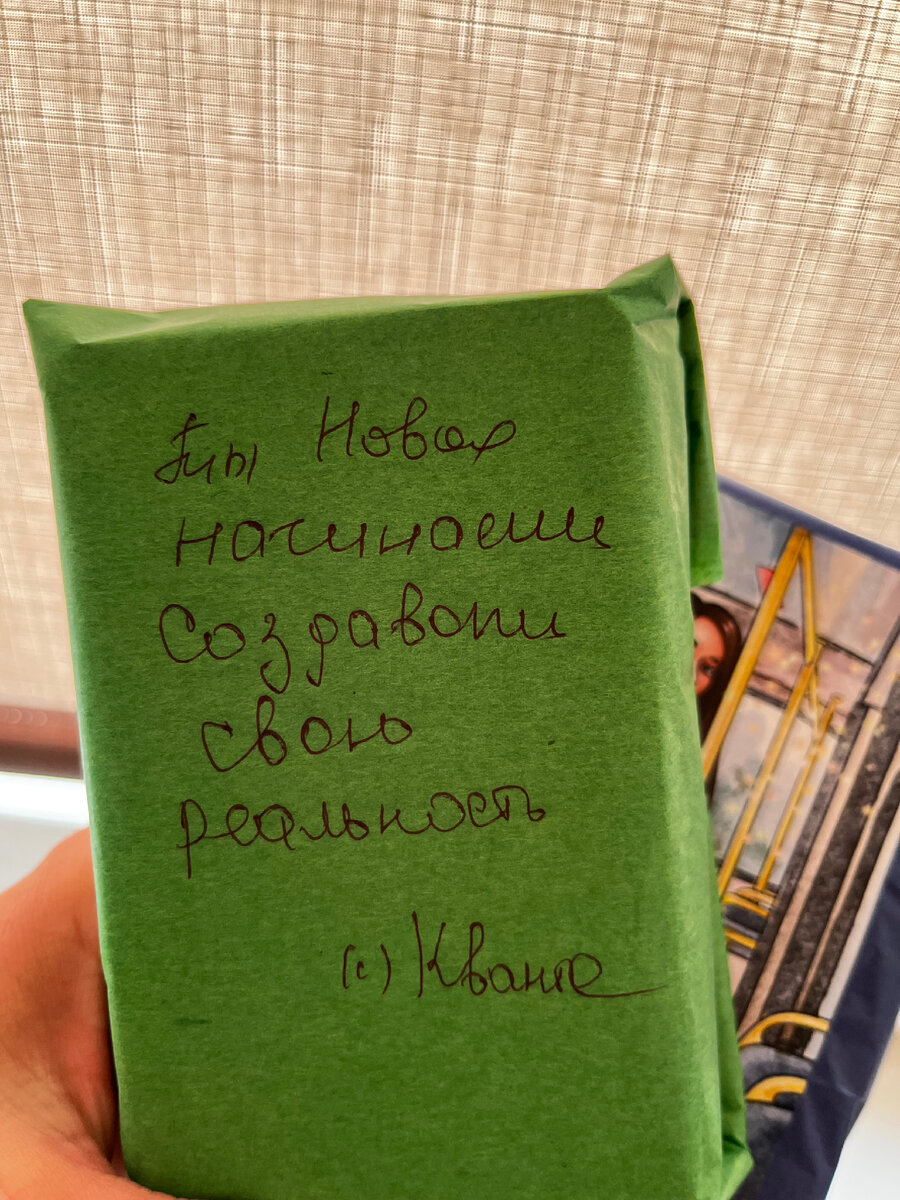 Ты Новая
начинаешь
создавать
свою
реальность
(с) Кванте